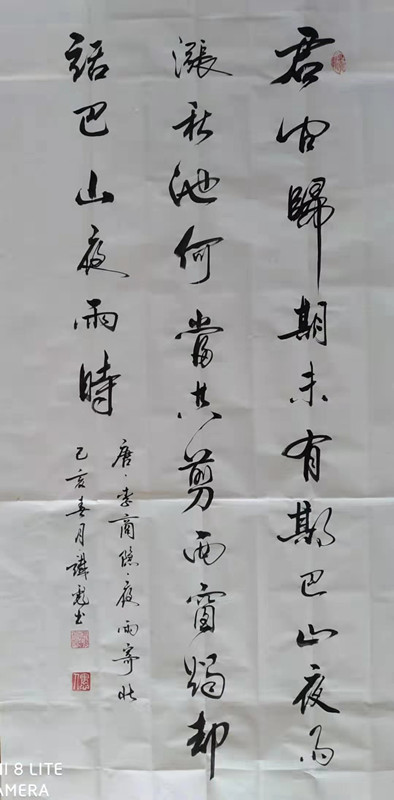 君问歸期未有期巴山夜雨
漲秋池何當共剪西窗燭却
話巴山夜雨時
唐·李商隱夜雨寄北
己亥春月彪书
8 LITE
AMERA